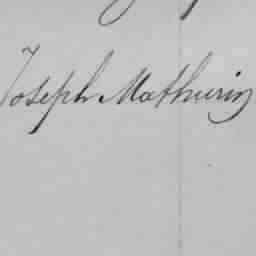 Joseph Mathurin